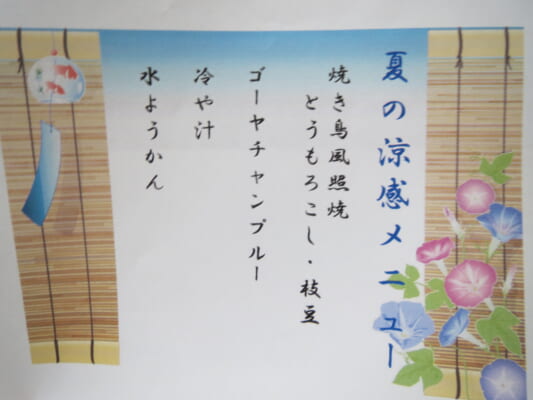 夏の涼感メニュー
焼き鳥風照焼
とうもろこし・枝豆
ゴーヤチャンプルー
冷や汁
水ようかん